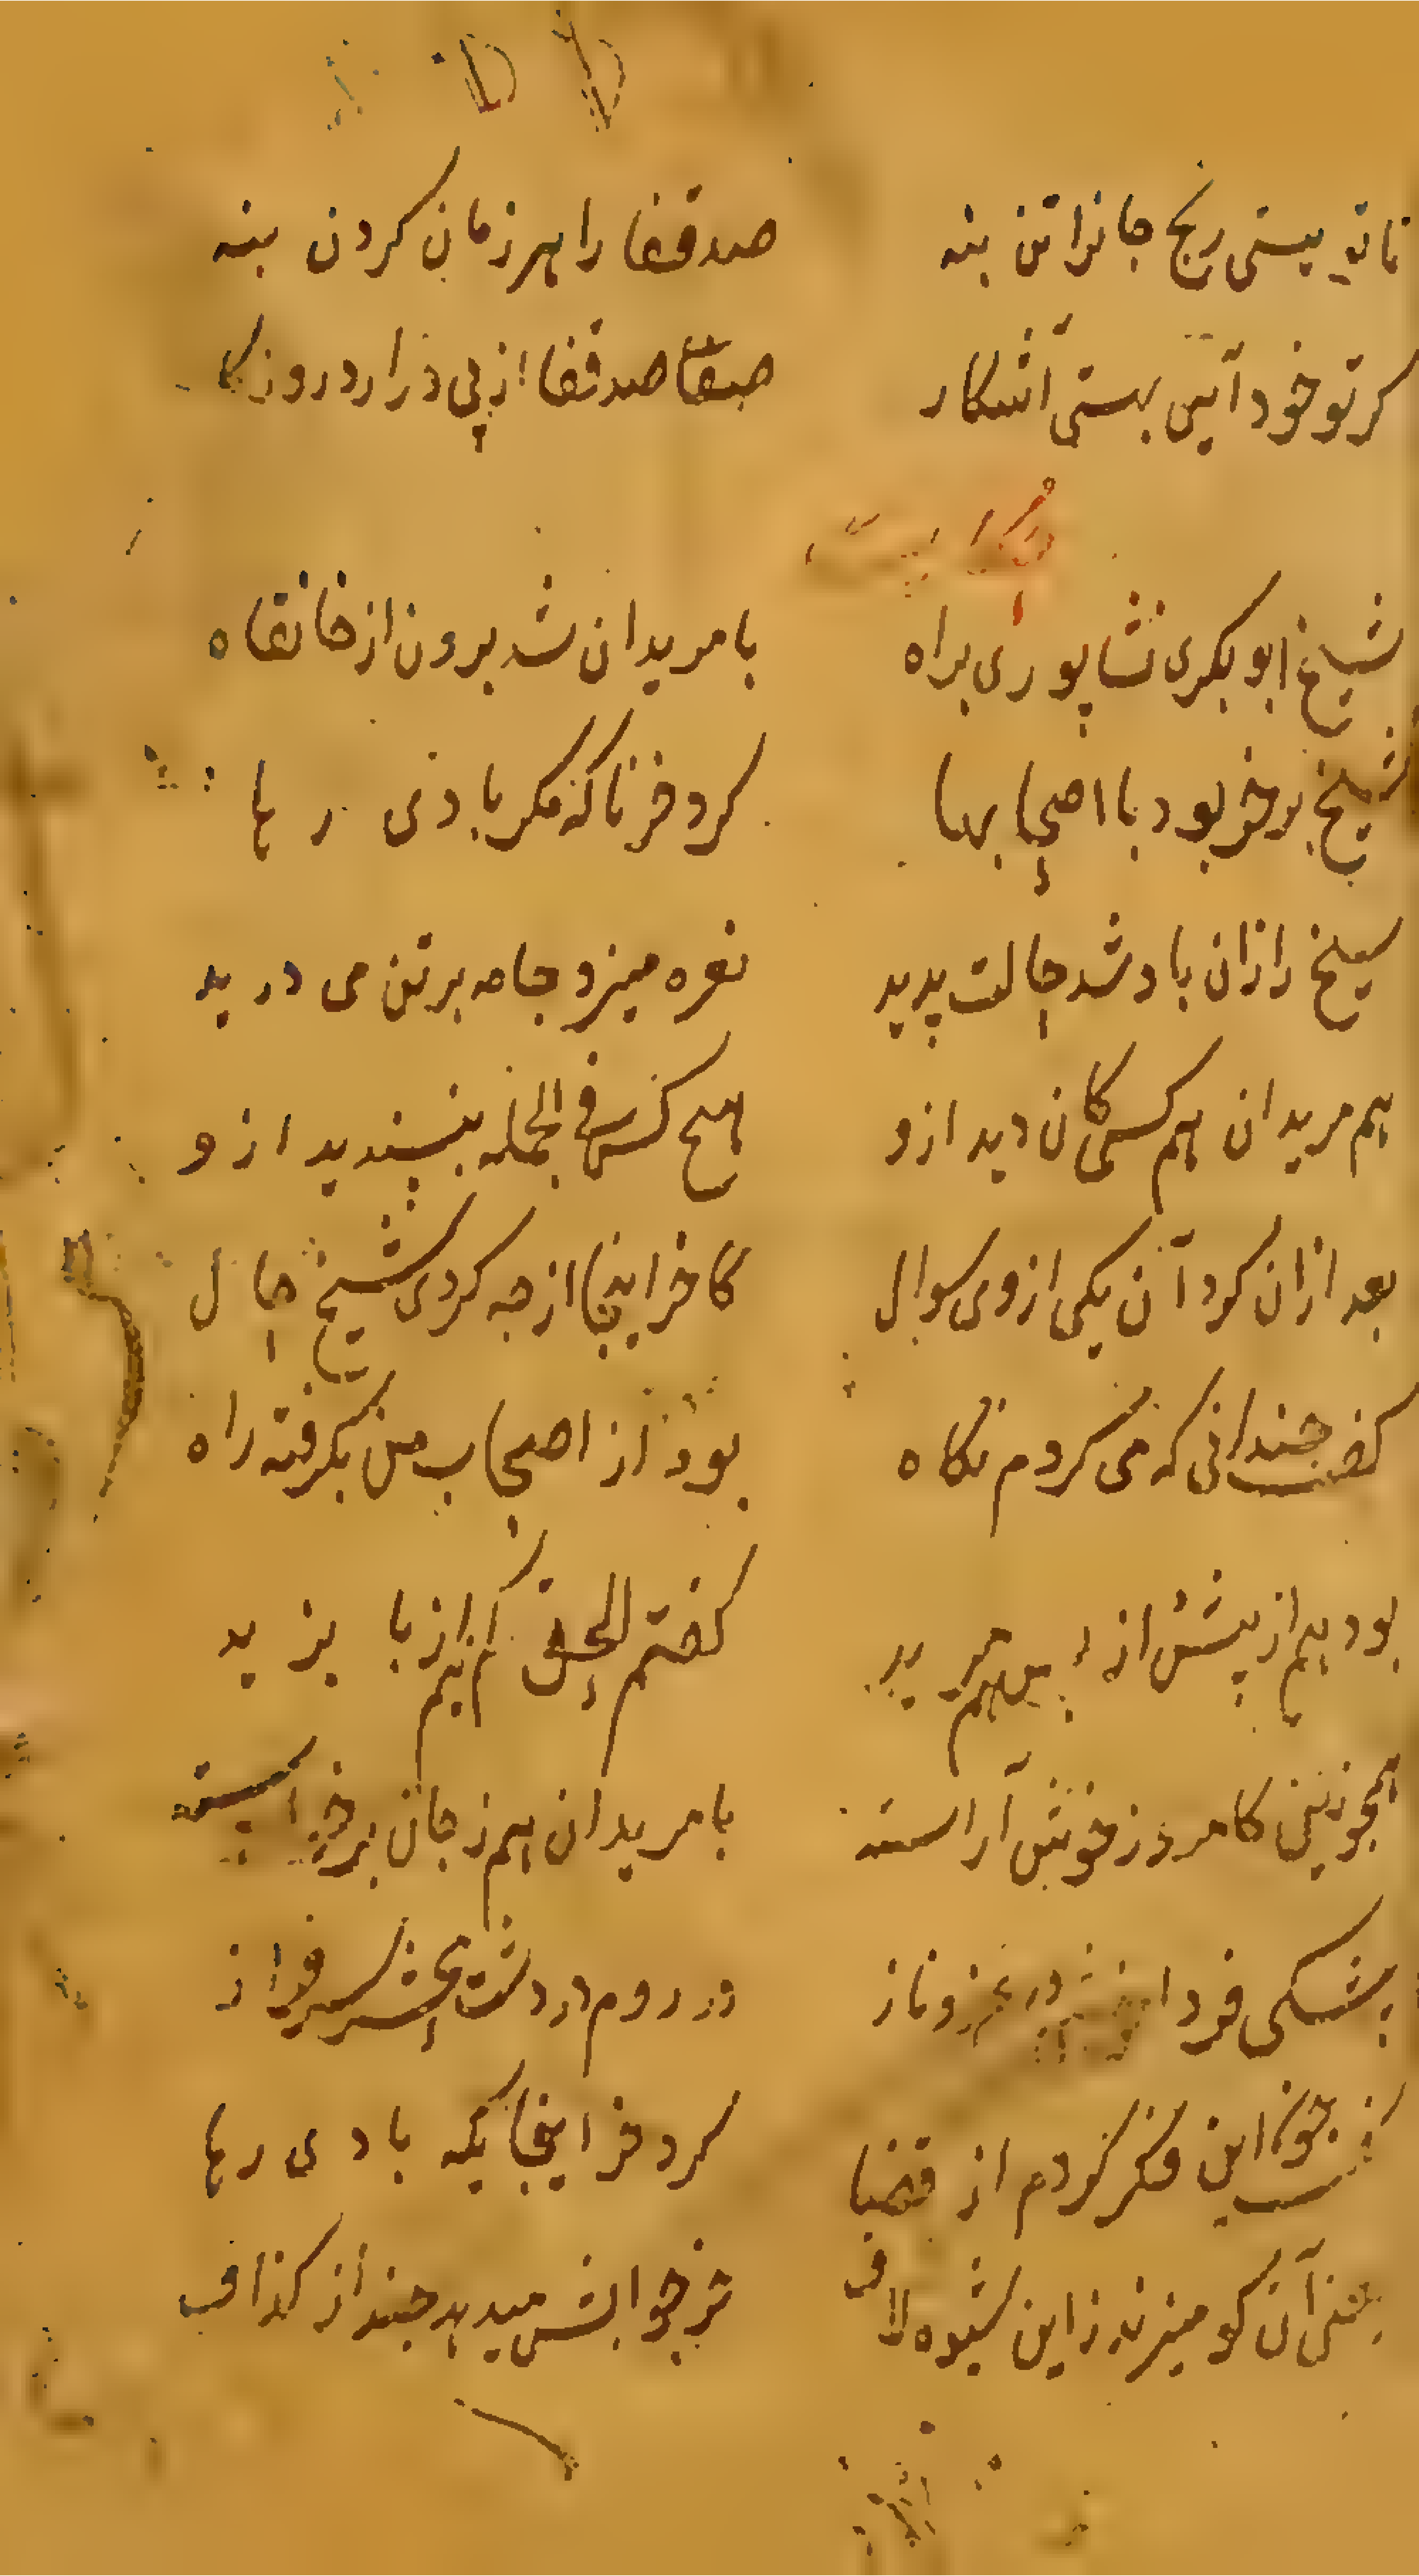 تا تو هستی رنج جانرا تن بنه صد قفا را هر زمان کردن بنه
کر تو خود آیی بهستی آشکار صد قفا از پی در آرد روزکار
حکایت
شیخ ابو بکری نشابوری براه با مریدان شد برون از خانقاه
شیخ بر خر بود با اصحابها کرد خر ناکه مکر بادی رها
شیخ را زان باد شد حالت پدید نعره میزد جامه بر تن می درید
هم مریدان هم کسی کان دید ازو هیچ کس فی الجمله نپسندید ازو
بعد ازان کرد آن یکی از وی سوال کاخر اینجا از چه کردی شیخ حال
کفت چندانی که می کردم نکاه بود از اصحاب من بکرفته راه
بود هم از پیش از پس هم مرید کفتم الحق کم نیم از با یزید
همچونین کامروز خوش آراسته با مریدان هم ز جان برخواسته
بیشکی فردا در عز و ناز در روم در دشت محشر سرفراز
کفت چون این فکر کردم از قضا کرد خر اینجایکه بادی رها
یعنی آن کو میزند زاین شیوه لاف خر جوابش میدهد چند از کذاف